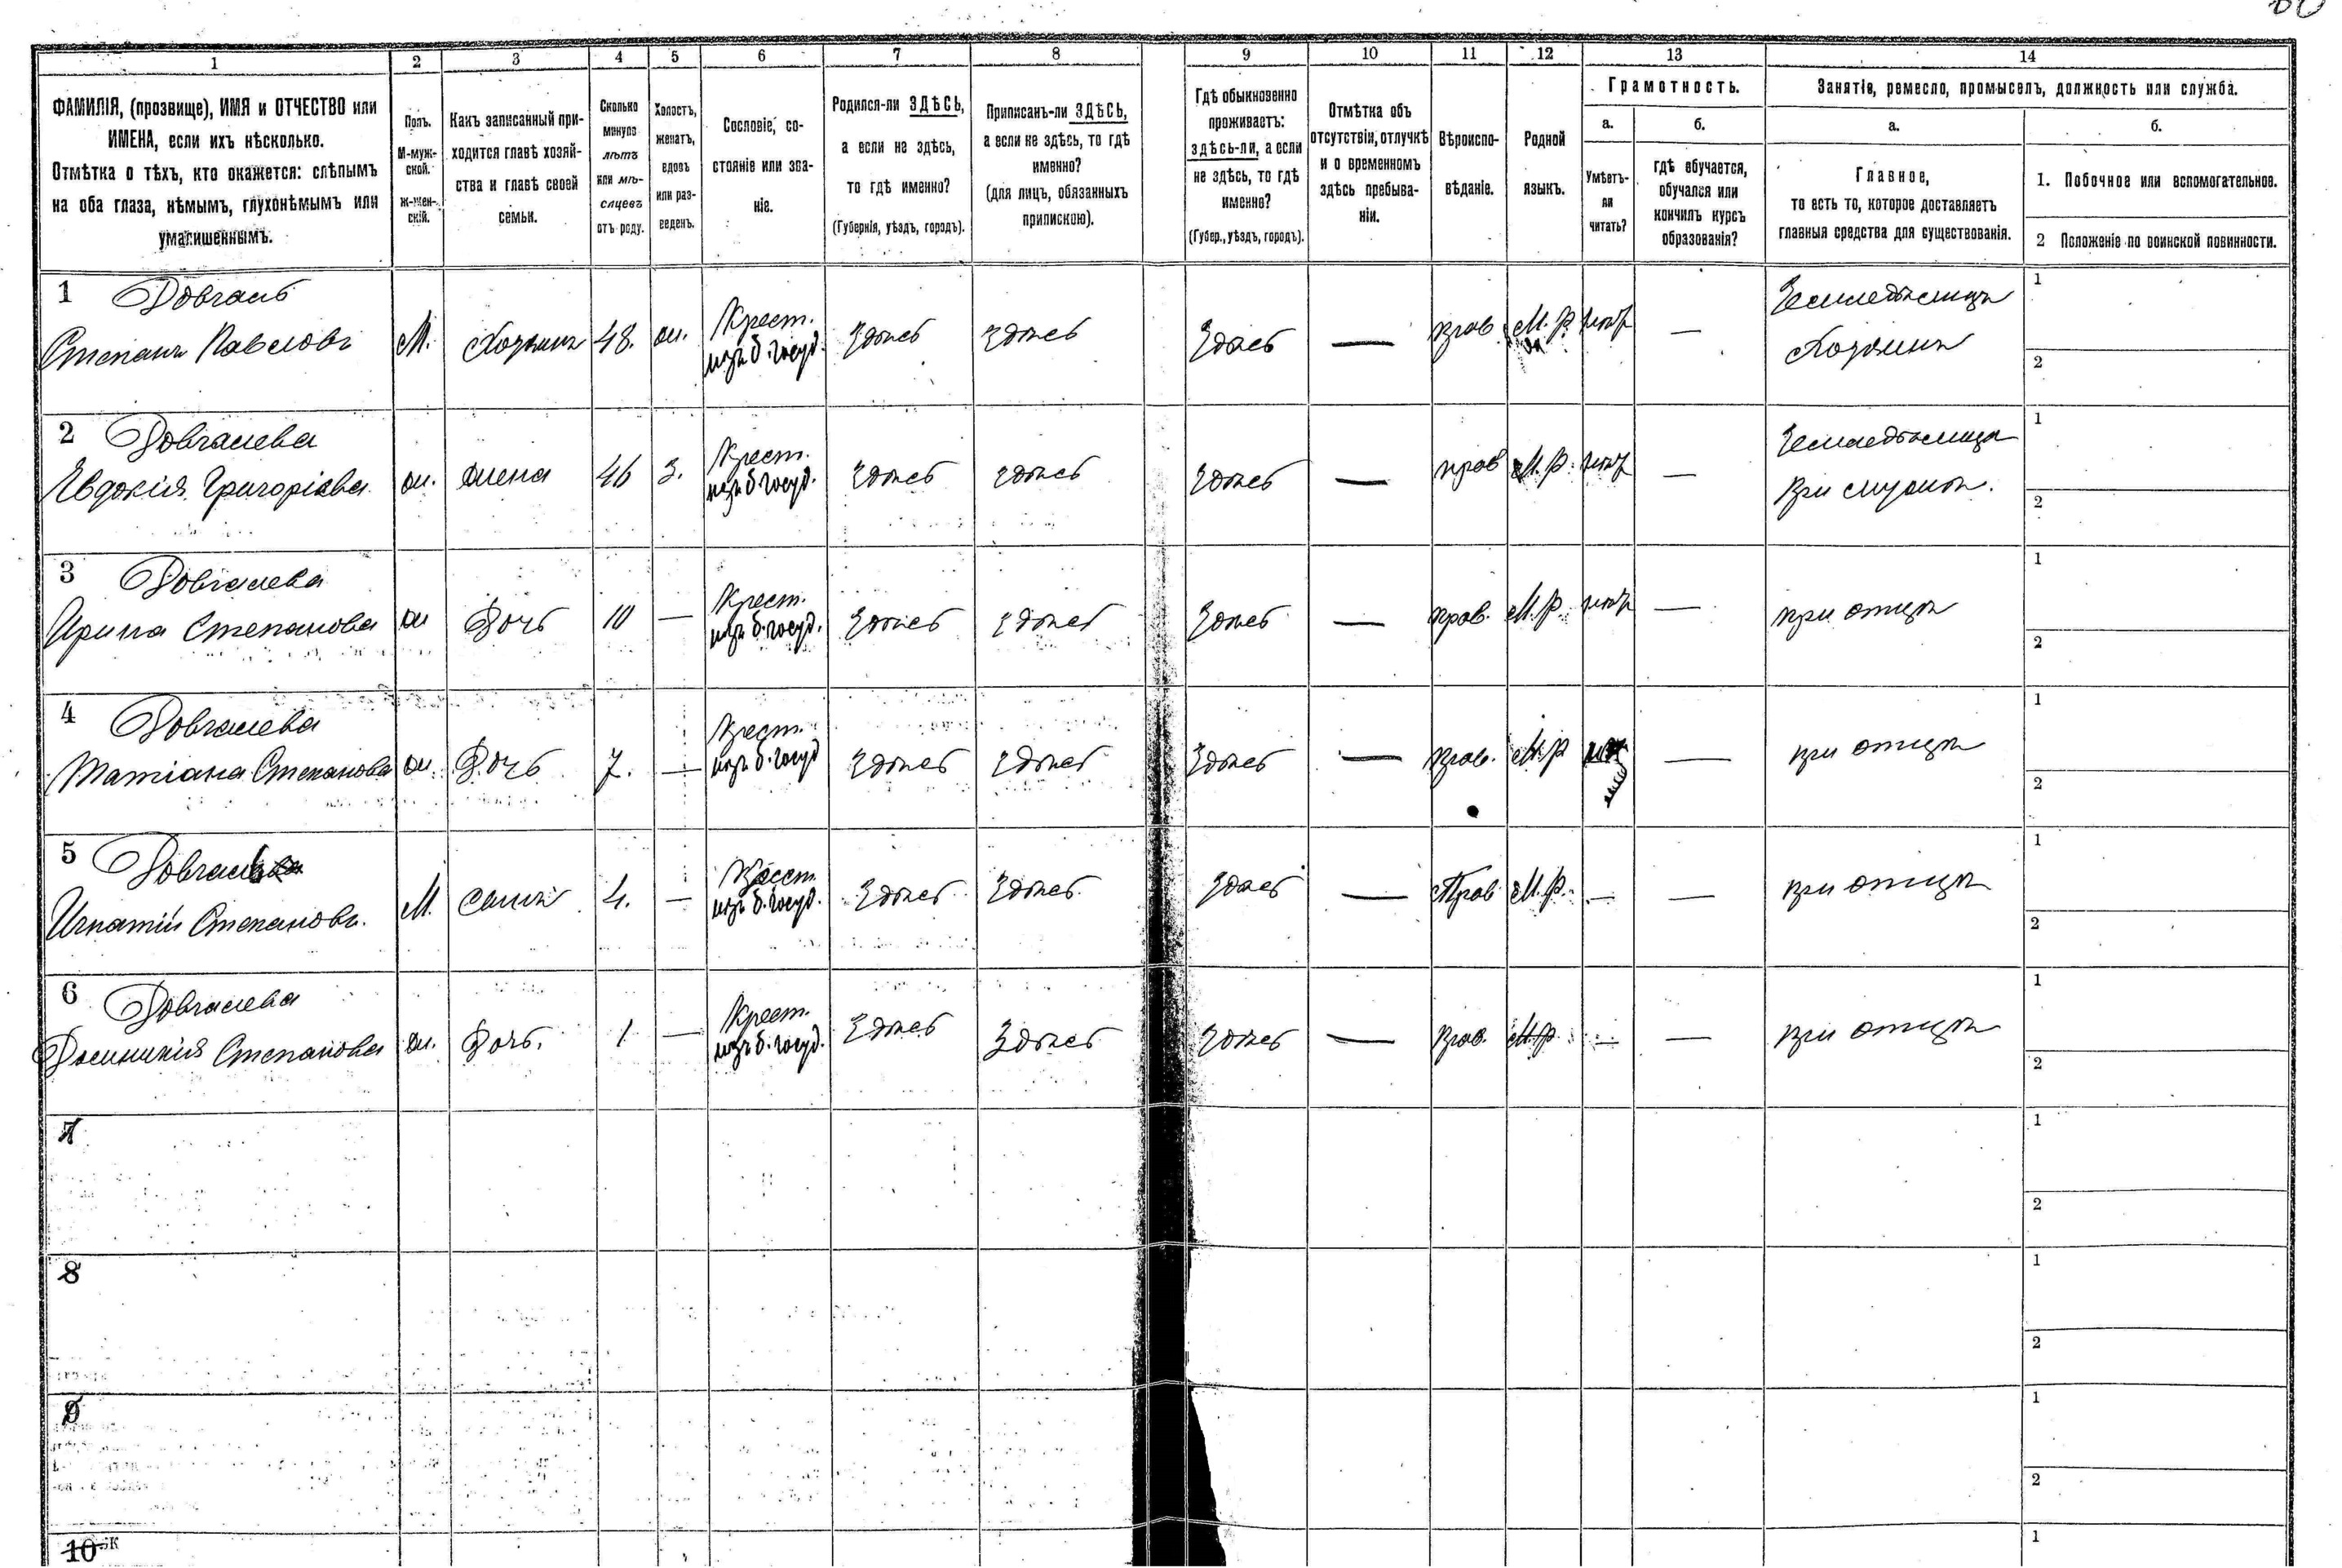 60
1 2 3 4 5 6 7 8 9 10 11 12 13 14
ФАМИЛІЯ, (прозвище), ИМЯ и ОТЧЕСТВО или
ИМЕНА, если ихъ нѣсколько.
Отмѣтка о тѣхъ, кто окажется: слѣпымъ
на оба глаза, нѣмымъ, глухонѣмымъ или
умалишеннымъ.
Полъ.
М-муж-
ской.
Ж-жен-
скій.
Какъ записанный при-
ходится главѣ хозяй-
ства и главѣ своей
семьи.
Сколько
минуло
лѣтъ
или мѣ-
сяцевъ
отъ роду.
Холостъ,
женатъ,
вдовъ
или раз-
веденъ.
Сословіе, со-
стояніе или зва-
ніе.
Родился-ли ЗДѢСЬ,
а если не здѣсь,
то гдѣ именно?
(Губернія, уѣздъ, городъ).
Приписанъ-ли ЗДѢСЬ,
а если не здѣсь, то гдѣ
именно?
(для лицъ, обязанныхъ
припискою).
Гдѣ обыкновенно
проживаетъ:
здѣсь-ли, а если
не здѣсь, то гдѣ
именно?
(Губер., уѣздъ, городъ).
Отмѣтка объ
отсутствіи, отлучкѣ
и о временномъ
здѣсь пребыва-
ніи.
Вѣроиспо-
вѣданіе.
Родной
языкъ.
Грамотность.
а.
Умѣетъ-
ли
читать?
б.
гдѣ обучается,
обучался или
кончилъ курсъ
образованія?
Занятіе, ремесло, промыселъ, должность или служба.
а.
Главное,
то есть то, которое доставляетъ
главныя средства для существованія.
б.
1. Побочное или вспомогательное.
2 Положеніе по воинской повинности.
1 Довгаль
Степанъ Павловъ
М.
Хозяинъ
48.
ж.
Крест.
изъ б. госуд.
Здѣсь
Здѣсь
Здѣсь
—
прав.
М. р.
нѣт
—
Земледѣлецъ
Хозяинъ
1
2
2 Довгалева
Евдокія Григоріева
ж.
жена
46
З.
Крест.
изъ б. госуд.
Здѣсь
Здѣсь
Здѣсь
—
прав
М. р.
нѣт
—
При мужѣ.
1
2
3 Довгалева
Ирина Степанова
ж
Дочь
10
—
Крест.
изъ б. госуд.
Здѣсь
Здѣсь
Здѣсь
—
прав.
М. р.
нѣт
—
при отцѣ
1
2
4 Довгалева
Татіана Степанова
ж.
Дочь
7.
—
Крест.
изъ б. госуд
Здѣсь
Здѣсь
Здѣсь
—
прав.
М. р
—
при отцѣ
1
2
5 Довгаль
Игнатій Степановъ.
М.
сынъ
4.
—
Крест.
изъ б. госуд.
Здѣсь
Здѣсь
Здѣсь
—
Прав
М. р.
—
—
при отцѣ
1
2
6 Довгалева
Степанова
ж.
Дочь.
1
—
Крест.
изъ б. госуд.
Здѣсь
Здѣсь
Здѣсь
—
прав.
М. р.
—
—
при отцѣ
1
2
7
1
2
8
1
2
9
1
2
10
1